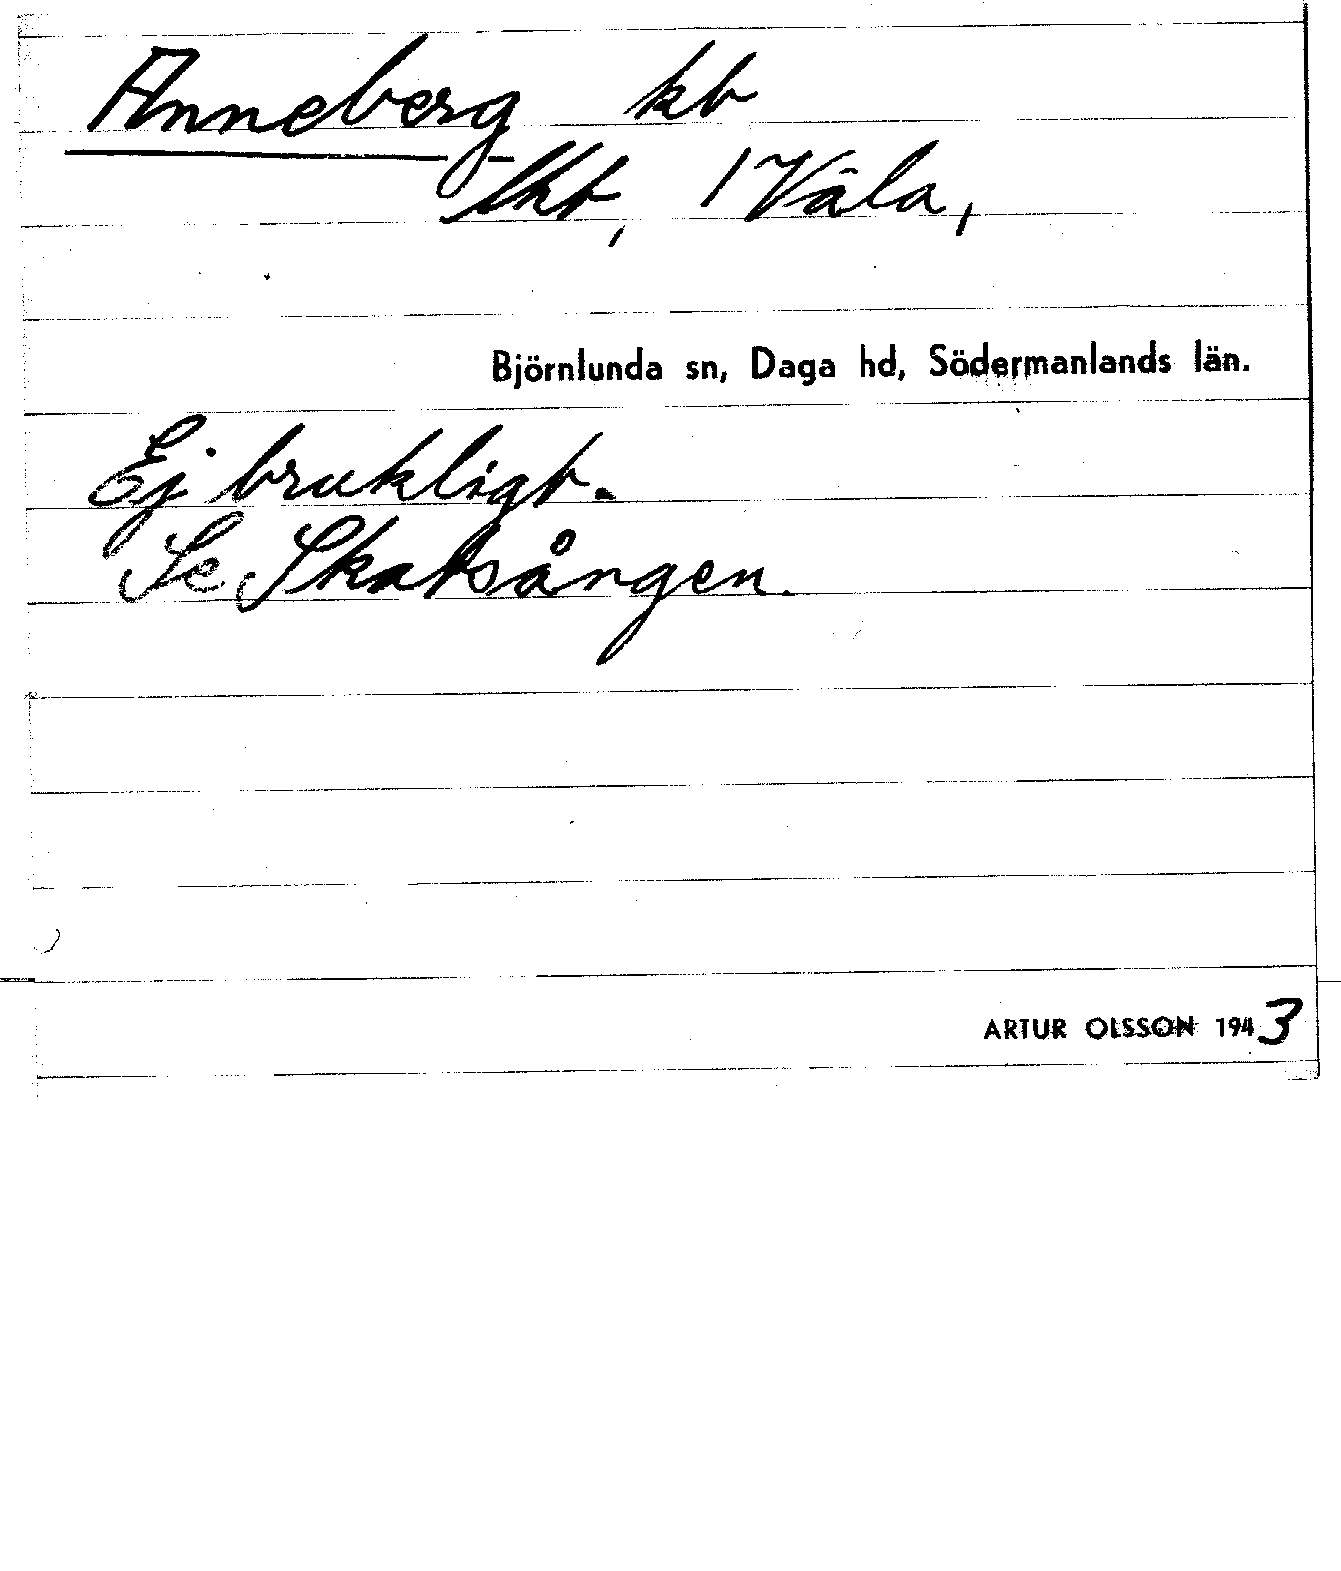 Anneberg kt
lht, 1 Väla,
Björnlunda sn, Daga hd, Södermanlands län.
Ej brukligt.
Se Skatsången.
ARTUR OLSSON 1943